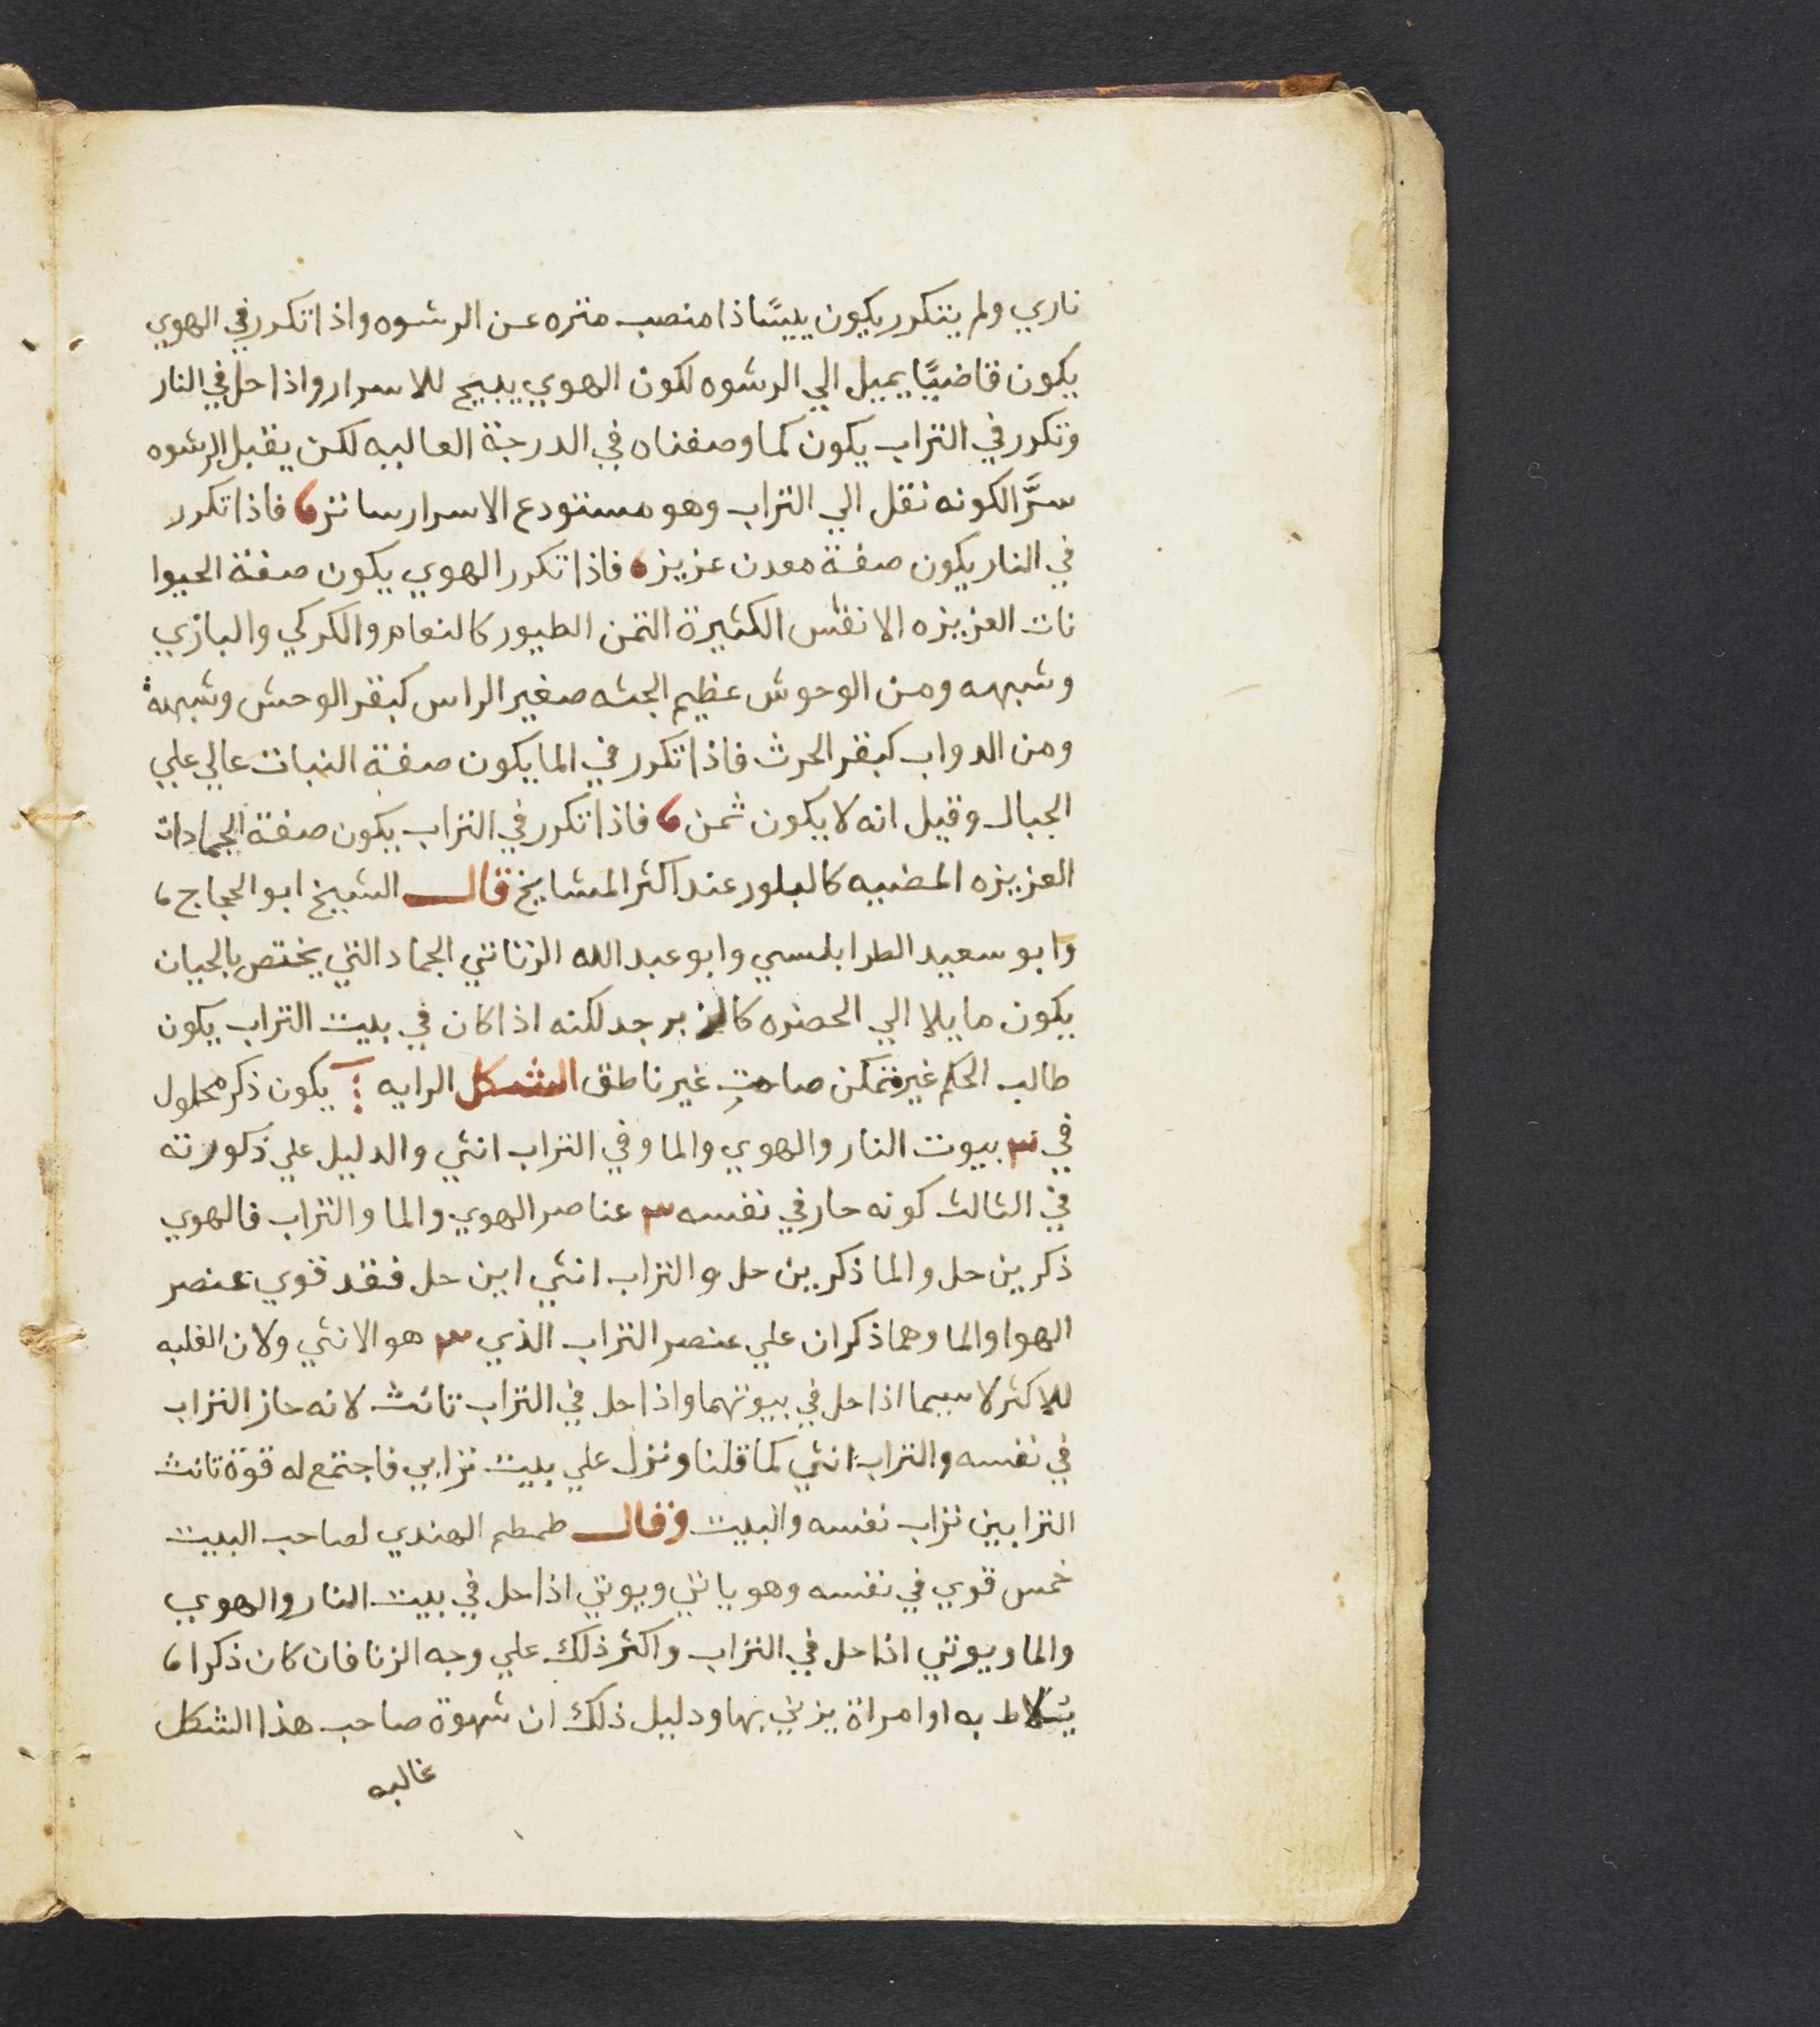 ناري ولم يتكرر يكون ييسًا ذا منصب منزه عن الرشوه واذا تكرر في الهوي
يكون قاضيًا يميل الي الرشوه لكون الهوي يبيح للاسرار واذا حل في النار
وتكرر في التراب يكون كما وصفناه في الدرجة العاليه لكن يقبل الرشوه
سرَّا لكونه نقل الي التراب وهو مستودع الاسرار ساتر، فاذا تكرر
في النار يكون صفة معدن عزيز، فاذا تكرر الهوي يكون صفة الحيوا
نات العزيزه الانفس الكثيرة الثمن الطيور كالنعام والكركي والبازي
وشبهه ومن الوحوش عظيم الجثه صغير الراس كبقر الوحش وشبهه
ومن الدواب كبقر الحرث فاذا تكرر في الما يكون صفة النبات عالي علي
الجبال وقيل انه لا يكون ثمن، فاذا تكرر في التراب يكون صفة الجمادات
العزيزه المضييه كالبلور عند اكثر المشايخ قال الشيخ ابو الحجاج،
وابو سعيد الطرابلسي وابو عبد الله الزناتي الجماد التي يختص بالحيان
يكون مايلا الي الحضره كالزبرجد لكنه اذا كان في بيت التراب يكون
طالب الحكم غير متمكن صامت غير ناطق الشكل الرايه يكون ذكر محلول
في ٣ بيوت النار والهوي والما وفي التراب انثي والدليل علي ذكورته
في الثالث كونه حار في نفسه ٣ عناصر الهوي والما والتراب فالهوي
ذكر ين حل والما ذكر ين حل والتراب انثي اين حل فقد قوي عنصر
الهوا والما وهما ذكران علي عنصر التراب الذي ٣ هو الانثي ولان الغلبه
للاكثر لا سيما اذا حل في بيوتهما واذا حل في التراب تانث لانه حاز التراب
في نفسه والتراب انثي كما قلنا ونزل علي بيت ترابي فاجتمع له قوة تانث
الترابين تراب نفسه والبيت وقال طمطم الهندي لصاحب البيت
خمس قوي في نفسه وهو ياتي ويوتي اذا حل في بيت النار والهوي
والما ويوتي اذا حل في التراب واكثر ذلك علي وجه الزنا فان كان ذكرا،
يتلاط به او امراة يزني بها ودليل ذلك ان شهوة صاحب هذا الشكل
غالبه